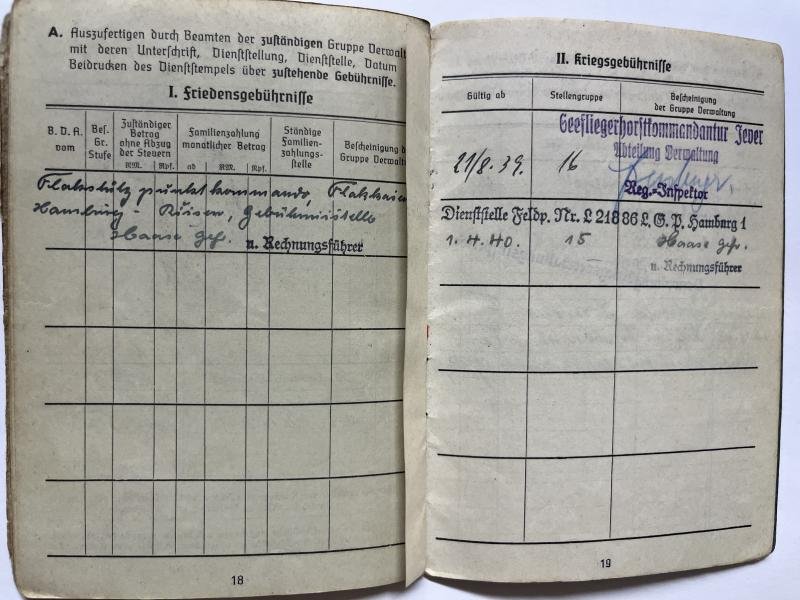 A. Auszufertigen durch Beamten der zuständigen Gruppe Verwalt
mit deren Unterschrift, Dienststellung, Dienststelle, Datum
Beidrucken des Dienststempels über zustehende Gebührnisse.
I. Friedensgebührnisse
B. D. A. vom
Bes. Gr. Stufe
Zuständiger Betrag ohne Abzug der Steuern
RM. Rpf.
Familienzahlung monatlicher Betrag
ab RM. Rpf.
Ständige Familien- zahlungs- stelle
Bescheinigung d
Gruppe Verwaltu
Hamburg -
Haase Gefr. u. Rechnungsführer
18
II. Kriegsgebührnisse
Gültig ab Stellengruppe Bescheinigung der Gruppe Verwaltung
Seefliegerhorstkommandantur Jever
Abteilung Verwaltung
21/8.39. 16
Reg.-Inspektor
Dienststelle Feldp. Nr. L 21886 L. G. P. Hamburg 1
1. 4. 40. 15 Haase Gefr.
u. Rechnungsführer
19